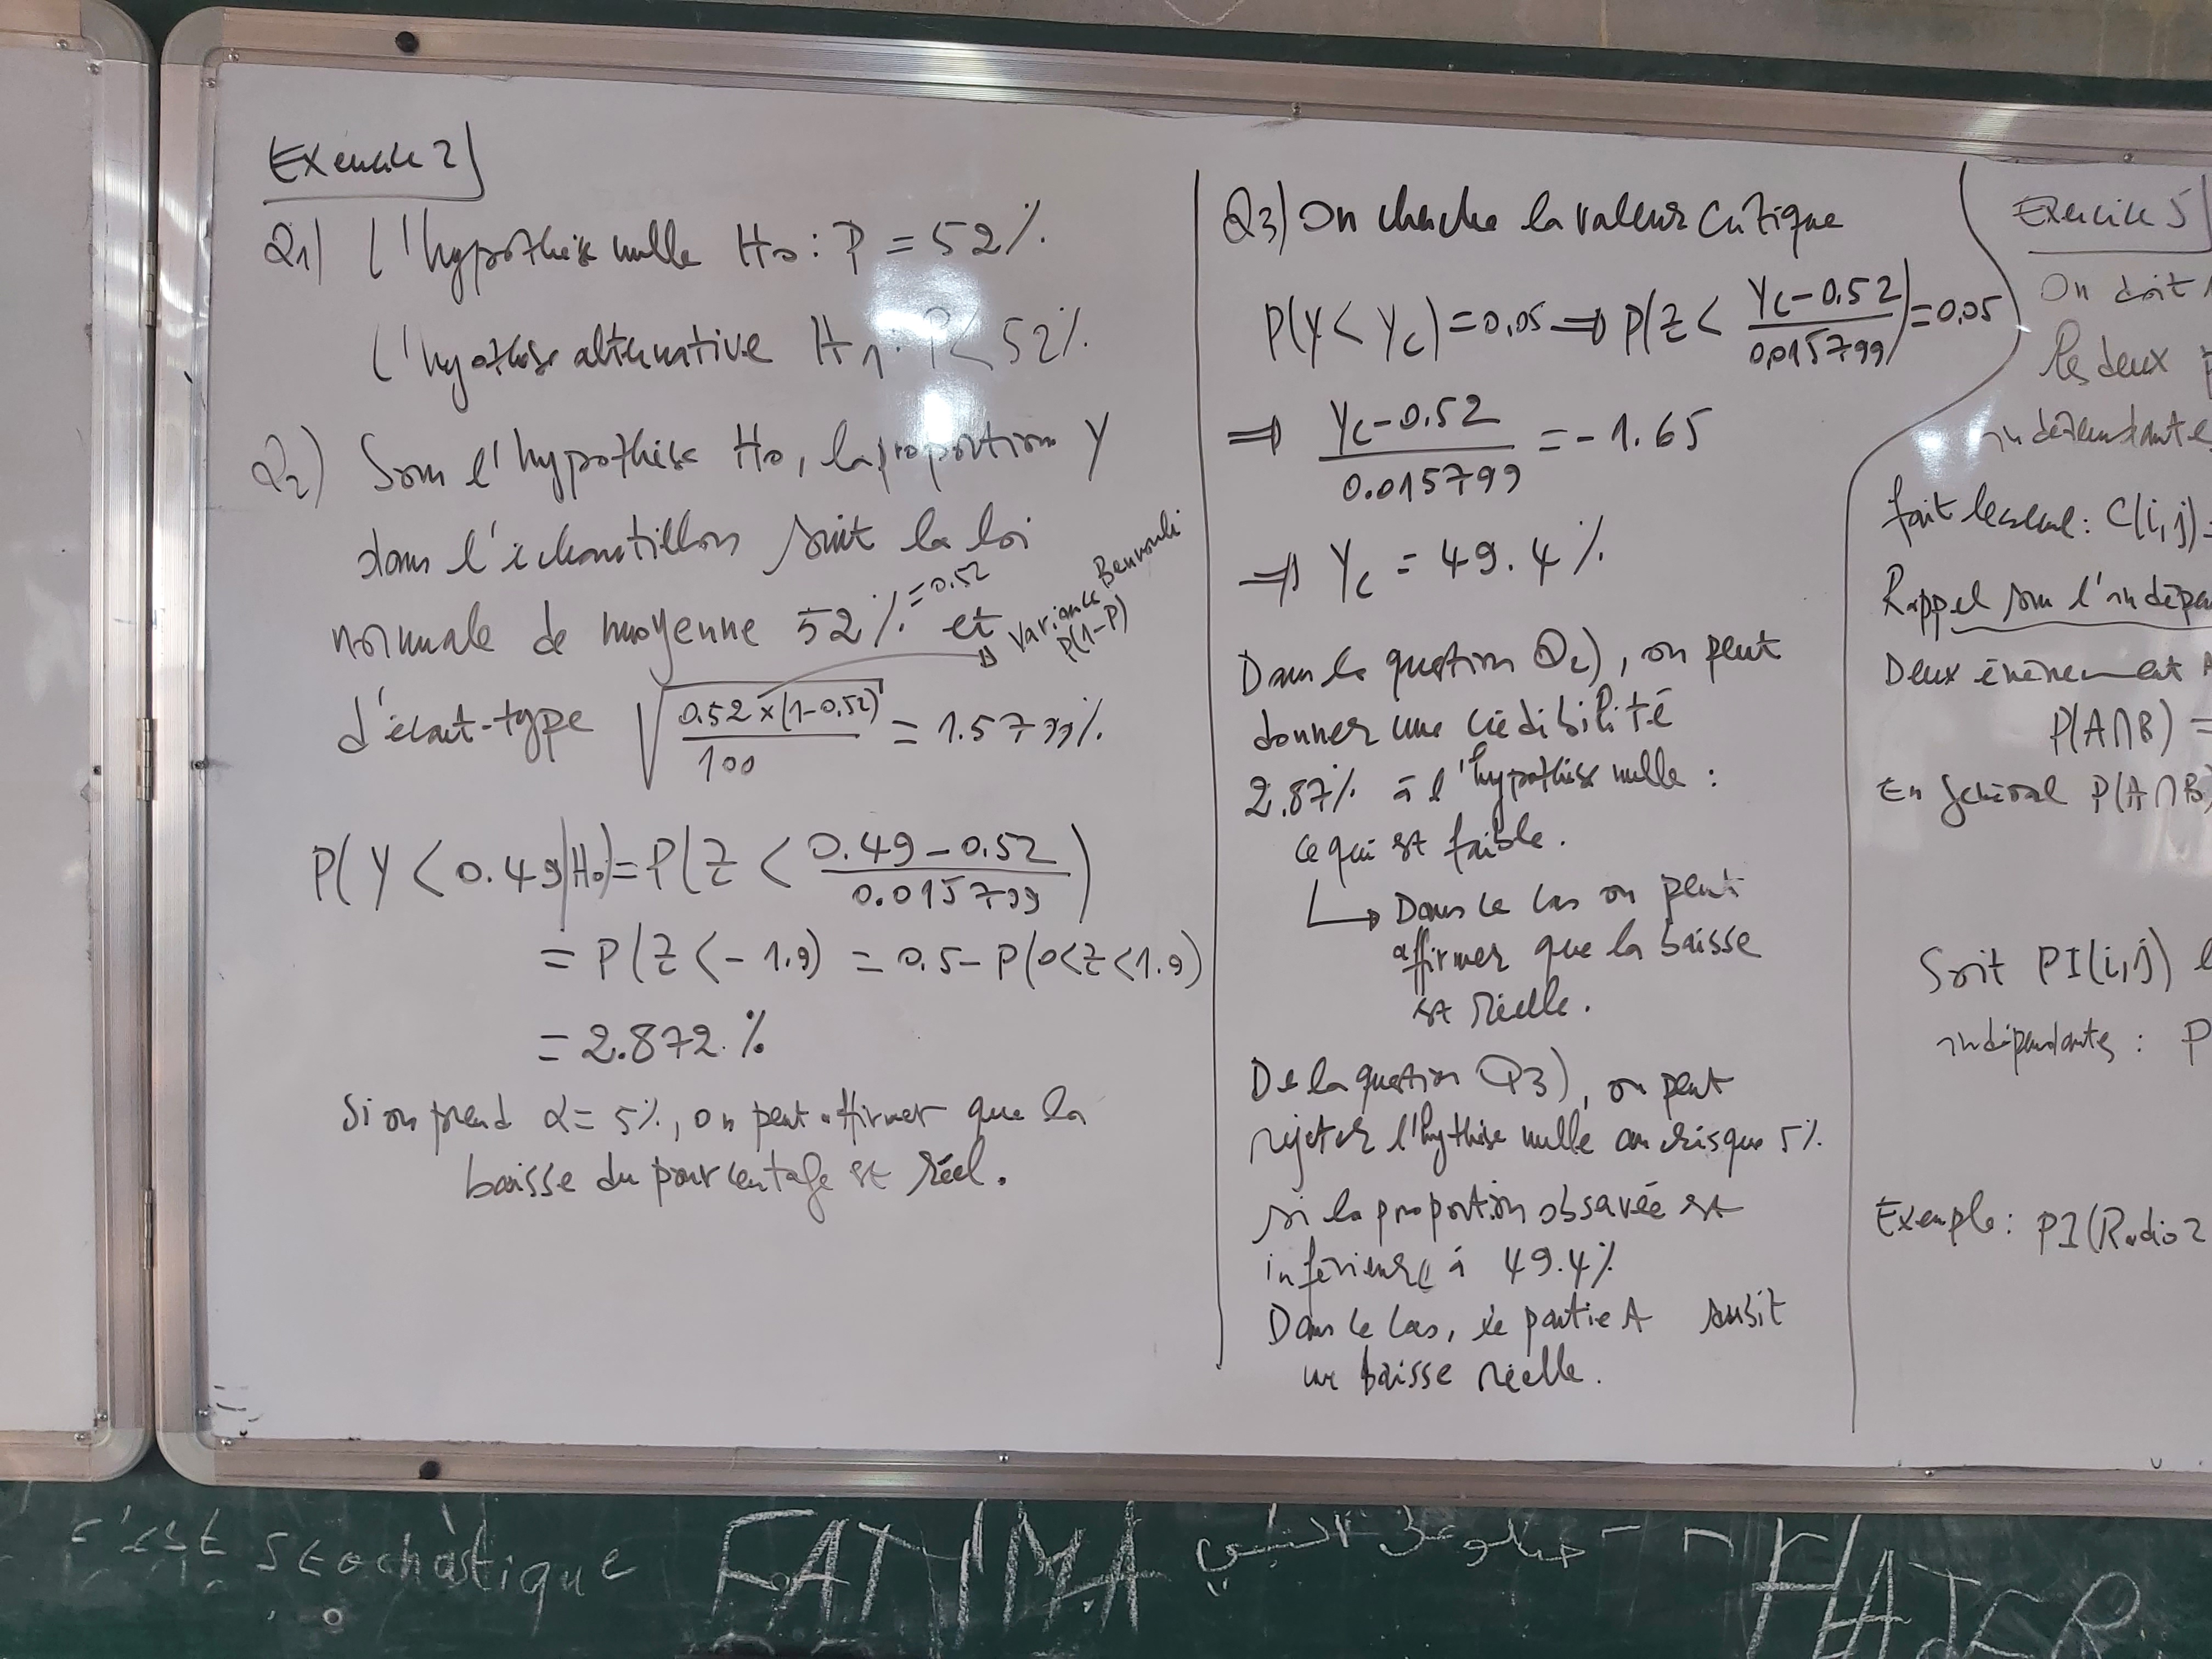 Exercice 2
Q1) l'hypothèse nulle H0 : P = 52%.
l'hyothèse alternative H1 : P < 52%.
Q2) Sous l'hypothèse H0, la proportion Y
dans l'échantillon suit la loi
normale de moyenne 52% = 0.52 et
Variance Bernoulli
P(1-P)
d'écart-type √(0.52 × (1-0.52) / 100) = 1.5799%.
P(Y < 0.49|H0) = P(Z < (0.49 - 0.52) / 0.015799)
= P(Z < - 1.9) = 0.5 - P(0<Z<1.9)
= 2.872 %
Si on prend α = 5%, on peut affirmer que la
baisse du pourcentage est réel.
Q3) On cherche la valeur critique
P(Y < Yc) = 0.05 ⇒ P(Z < (Yc - 0.52) / 0.015799) = 0.05
⇒ (Yc - 0.52) / 0.015799 = - 1.65
⇒ Yc = 49.4 %
Dans la question Q2), on peut
donner une crédibilité
2.87% à l'hypothèse nulle :
ce qui est faible.
↳ Dans ce cas on peut
affirmer que la baisse
est réelle.
De la question Q3), on peut
rejeter l'hythèse nulle au risque 5%
si la proportion observée est
inférieure à 49.4%
Dans ce cas, le partie A subit
une baisse réelle.
Exercice 5
On doit
les deux
indépendante
fait le calcul : C(i,j)
Rappel sur l'indépe
Deux évènement A
P(A∩B) =
En général P(A∩B)
Soit PI(i,j) l
indépendantes : P
Exemple : PI(Radio2
c'est stochastique
FATIMA
صلو على النبي
HAJER